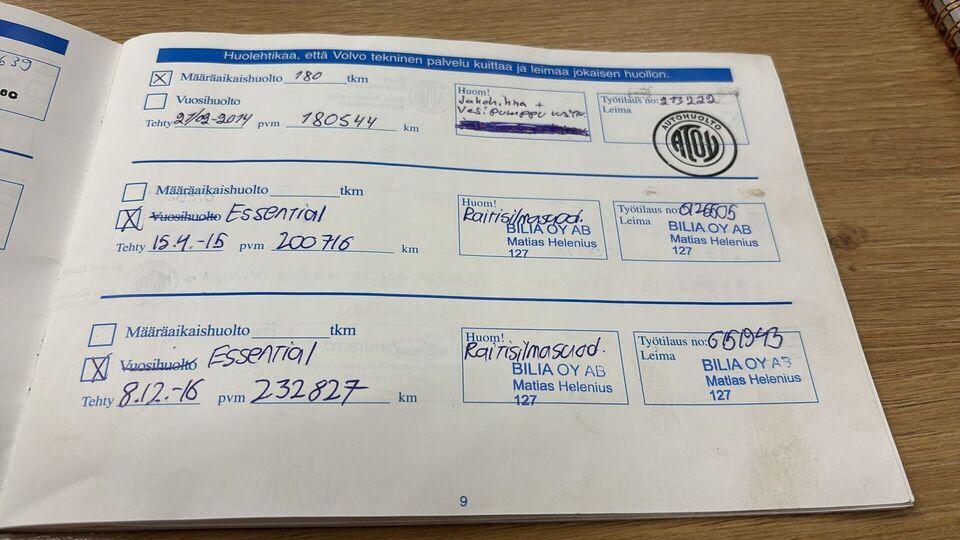 639
Huolehtikaa, että Volvo tekninen palvelu kuittaa ja leimaa jokaisen huollon.
Määräaikaishuolto 180 tkm
Vuosihuolto
Tehty 27/02-2014 pvm 180544 km
Huom!
Jakohihna +
Vesipumppu
Työtilaus no: 273222
Leima
AUTOHUOLTO
ATOY
Määräaikaishuolto tkm
Vuosihuolto Essential
Tehty 15.4.-15 pvm 200716 km
Huom!
Raitisilmasuod.
BILIA OY AB
Matias Helenius
127
Työtilaus no: 6126505
Leima
BILIA OY AB
Matias Helenius
127
Määräaikaishuolto tkm
Vuosihuolto Essential
Tehty 8.12.-16 pvm 232827 km
Huom!
Raitisilmasuod.
BILIA OY AB
Matias Helenius
127
Työtilaus no: 6151943
Leima
BILIA OY AB
Matias Helenius
127
9